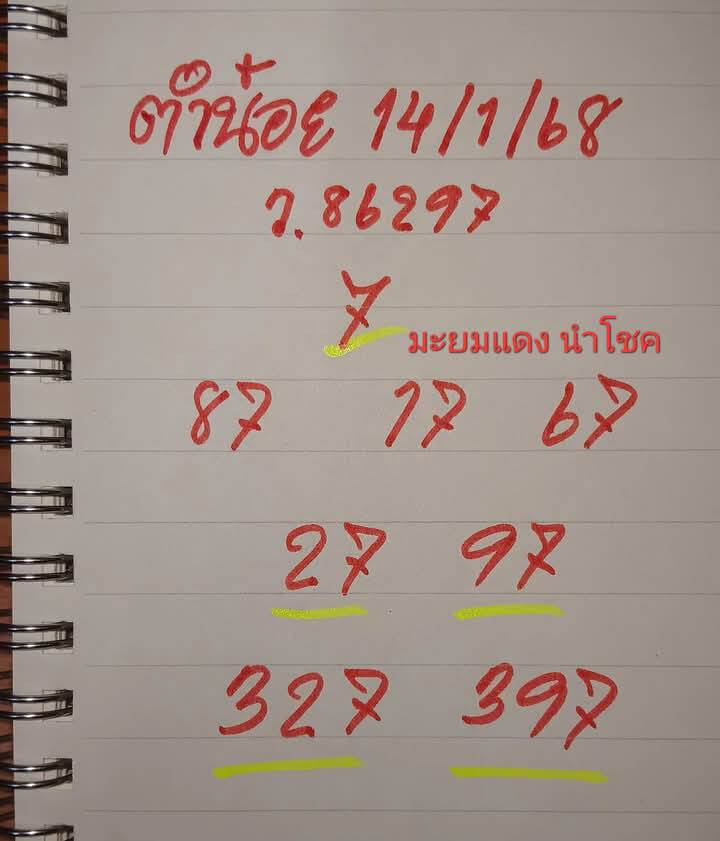 ตำน้อย 14/1/68
ว.86297
7
มะยมแดง นำโชค
87 17 67
27 97
327 397